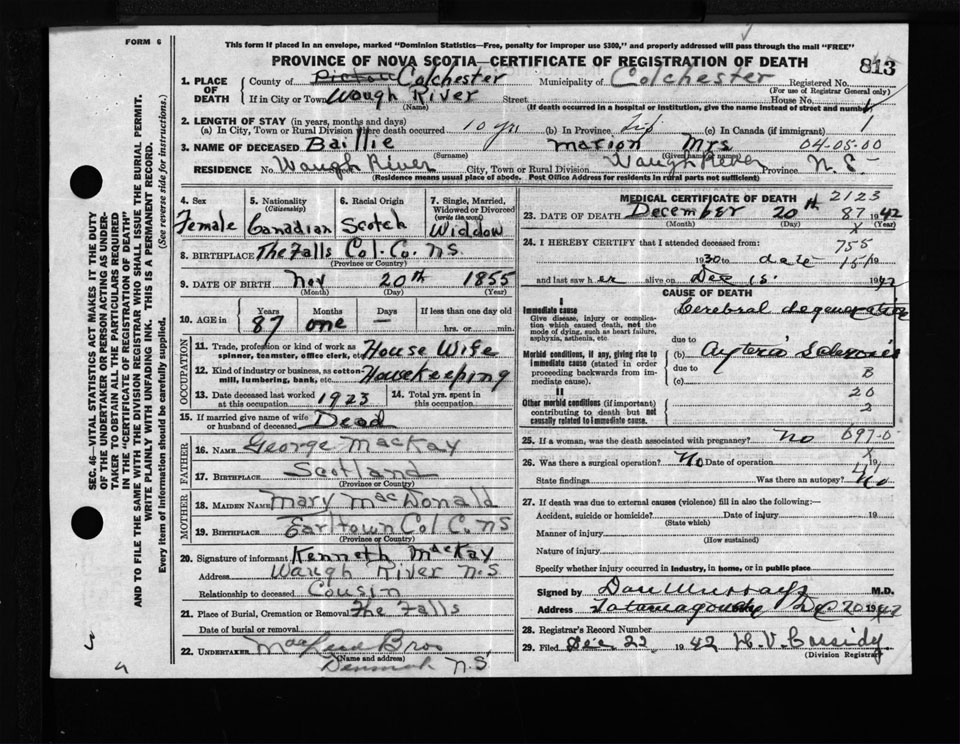 FORM 6
This form if placed in an envelope, marked "Dominion Statistics—Free, penalty for improper use $300," and properly addressed will pass through the mail "FREE"
PROVINCE OF NOVA SCOTIA—CERTIFICATE OF REGISTRATION OF DEATH
813
1. PLACE OF DEATH County of Pictou Colchester Municipality of Colchester Registered No.
(For use of Registrar General only)
If in City or Town Waugh River Street House No.
(Name) (If death occurred in a hospital or institution, give the name instead of street and number)
2. LENGTH OF STAY (in years, months and days)
(a) In City, Town or Rural Division where death occurred 10 yrs (b) In Province life (c) In Canada (if immigrant) 1
3. NAME OF DECEASED Baillie Marion Mrs 04-05-00
(Surname) (Given name or names)
RESIDENCE No. Waugh River City, Town or Rural Division Waugh River Province N.S.
(Residence means usual place of abode. Post Office Address for residents in rural parts not sufficient)
4. Sex Female
5. Nationality (Citizenship) Canadian
6. Racial Origin Scotch
7. Single, Married, Widowed or Divorced (write the word) Widdow
8. BIRTHPLACE The Falls Col. Co. N.S.
(Province or Country)
9. DATE OF BIRTH Nov 20th 1855
(Month) (Day) (Year)
10. AGE in Years 87 Months one Days — If less than one day old hrs. or min.
OCCUPATION
11. Trade, profession or kind of work as spinner, teamster, office clerk, etc. House Wife
12. Kind of industry or business, as cotton-mill, lumbering, bank, etc. Housekeeping
13. Date deceased last worked at this occupation 1923 14. Total yrs. spent in this occupation
15. If married give name of wife or husband of deceased Dead
FATHER
16. NAME George MacKay
17. BIRTHPLACE Scotland
(Province or Country)
MOTHER
18. MAIDEN NAME Mary MacDonald
19. BIRTHPLACE Earltown Col. C. NS
(Province or Country)
20. Signature of informant Kenneth MacKay
Address Waugh River N.S
Relationship to deceased Cousin
21. Place of Burial, Cremation or Removal The Falls
Date of burial or removal
22. UNDERTAKER Bros
(Name and address)
Denmark N.S
MEDICAL CERTIFICATE OF DEATH 2123
23. DATE OF DEATH December 20th 87 1942
(Month) (Day) (Year)
X
24. I HEREBY CERTIFY that I attended deceased from:
755
1930 to date 1942
and last saw her alive on Dec 15 1942
CAUSE OF DEATH
I
Immediate cause
Give disease, injury or complication which caused death, not the mode of dying, such as heart failure, asphyxia, asthenia, etc
(a) Cerebral degeneration
due to
Morbid conditions, if any, giving rise to immediate cause (stated in order proceeding backwards from immediate cause).
(b) Arterio Sclerosis
due to B
(c)
20
II
Other morbid conditions (if important) contributing to death but not causally related to immediate cause.
2
25. If a woman, was the death associated with pregnancy? No 097-0
X
26. Was there a surgical operation? No Date of operation 19
State findings Was there an autopsy? No
27. If death was due to external causes (violence) fill in also the following:—
Accident, suicide or homicide? Date of injury 19
(State which)
Manner of injury
(How sustained)
Nature of injury
Specify whether injury occurred in industry, in home, or in public place
Signed by Dan Murray M.D.
Address Tatamagouche Dec 20 1942
28. Registrar's Record Number
29. Filed Dec 22 1942 H. V. Cassidy
(Division Registrar)
SEC. 46—VITAL STATISTICS ACT MAKES IT THE DUTY
OF THE UNDERTAKER OR PERSON ACTING AS UNDER-
TAKER TO OBTAIN ALL THE PARTICULARS REQUIRED
IN THE "CERTIFICATE OF REGISTRATION OF DEATH"
AND TO FILE THE SAME WITH THE DIVISION REGISTRAR WHO SHALL ISSUE THE BURIAL PERMIT.
WRITE PLAINLY WITH UNFADING INK. THIS IS A PERMANENT RECORD.
Every item of information should be carefully supplied. (See reverse side for instructions.)